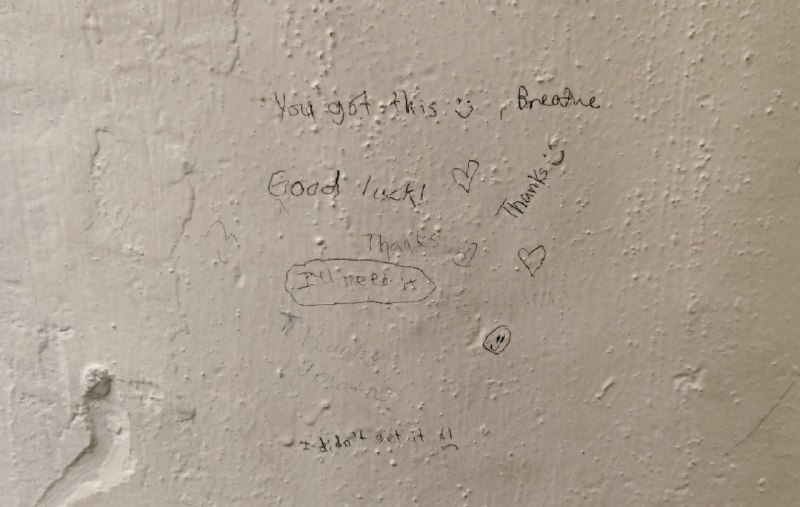 You got this :) , Breathe
Good luck!
Thanks :)
Thanks
I'll need it
Thanks
You too
I didn't get it